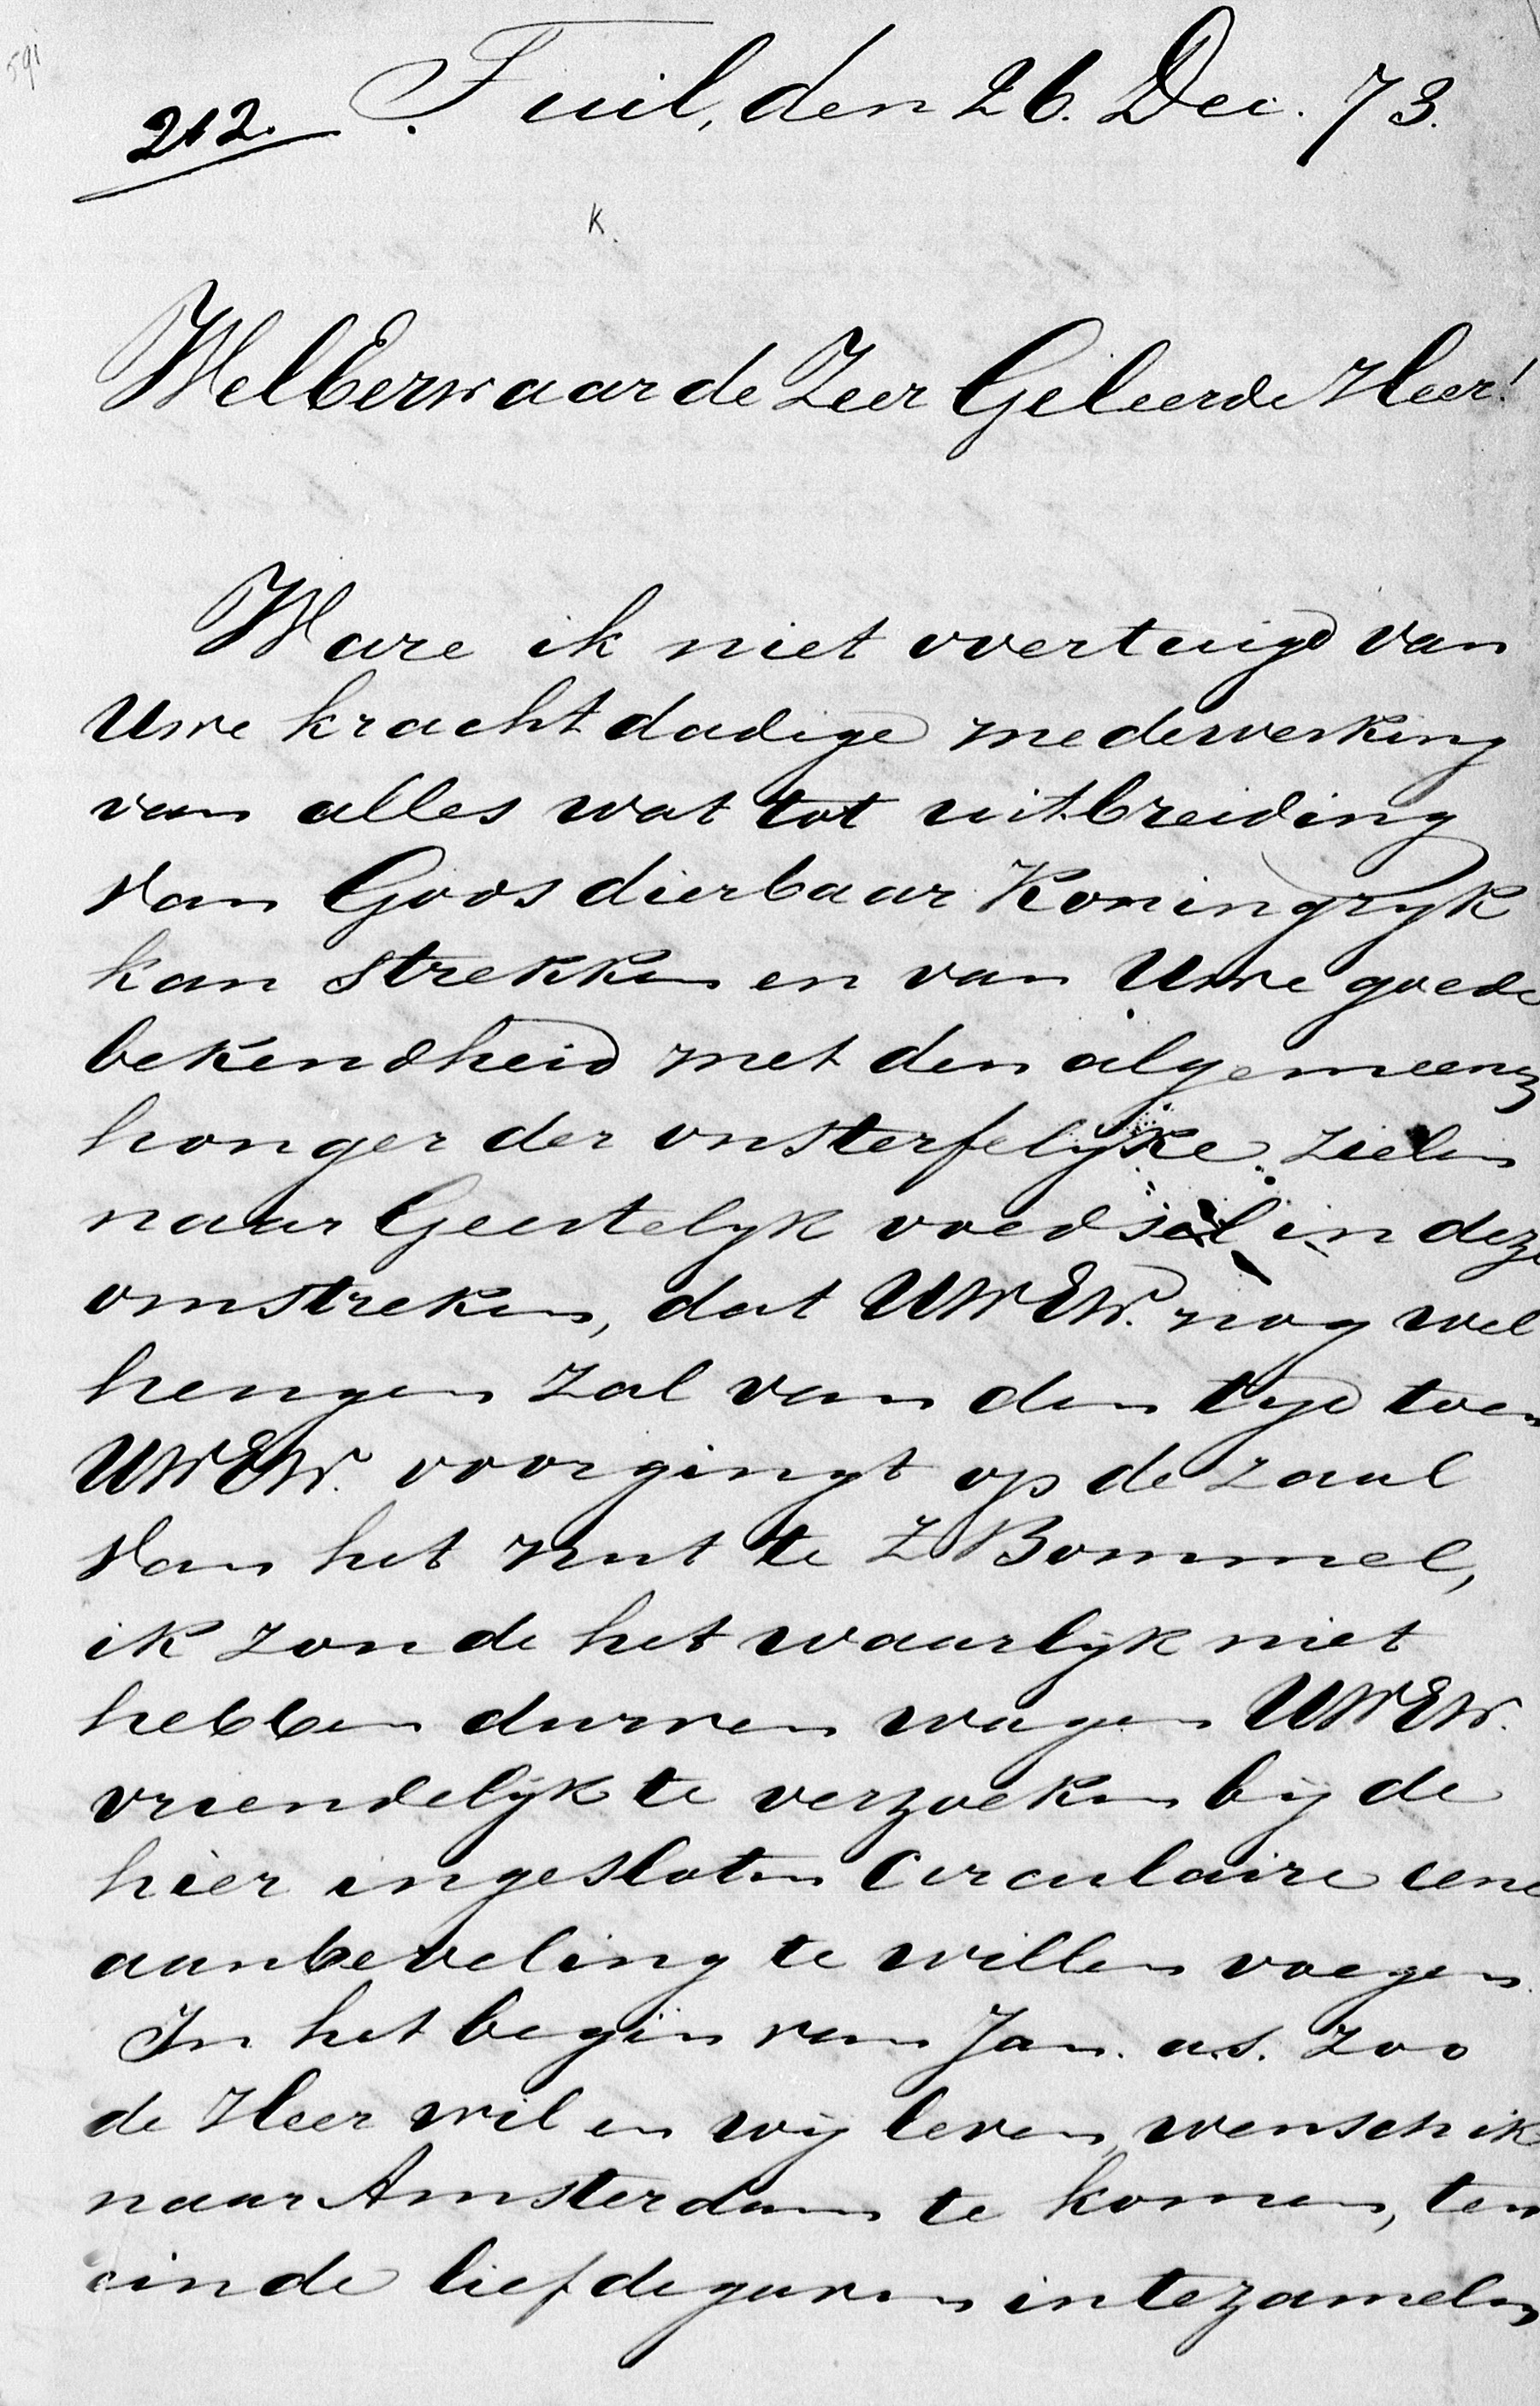 591
212. Tuil, den 26. Dec. 73.
K.
WelEerwaarde Zeer Geleerde Heer!
Ware ik niet overtuigd van
Uwe krachtdadige medewerking
van alles wat tot uitbreiding
van Gods dierbaar Koningryk
kan strekken en van Uwe goede
bekendheid met den algemeenen
honger der onsterfelijke zielen
naar Geestelyk voedsel in deze
omstreken, dat UWEW. nog wel
heugen zal van den tyd toen
UWEW. voorgingt op de zaal
van het nut te Z Bommel,
ik zoude het waarlijk niet
hebben durven wagen UWEW.
vriendelijk te verzoeken bij de
hier ingesloten Circulaire eene
aanbeveling te willen voegen.
In het begin van Jan. a.s. zoo
de Heer wil en wij leven, wensch ik
naar Amsterdam te komen, ten
einde liefdegaven intezamelen